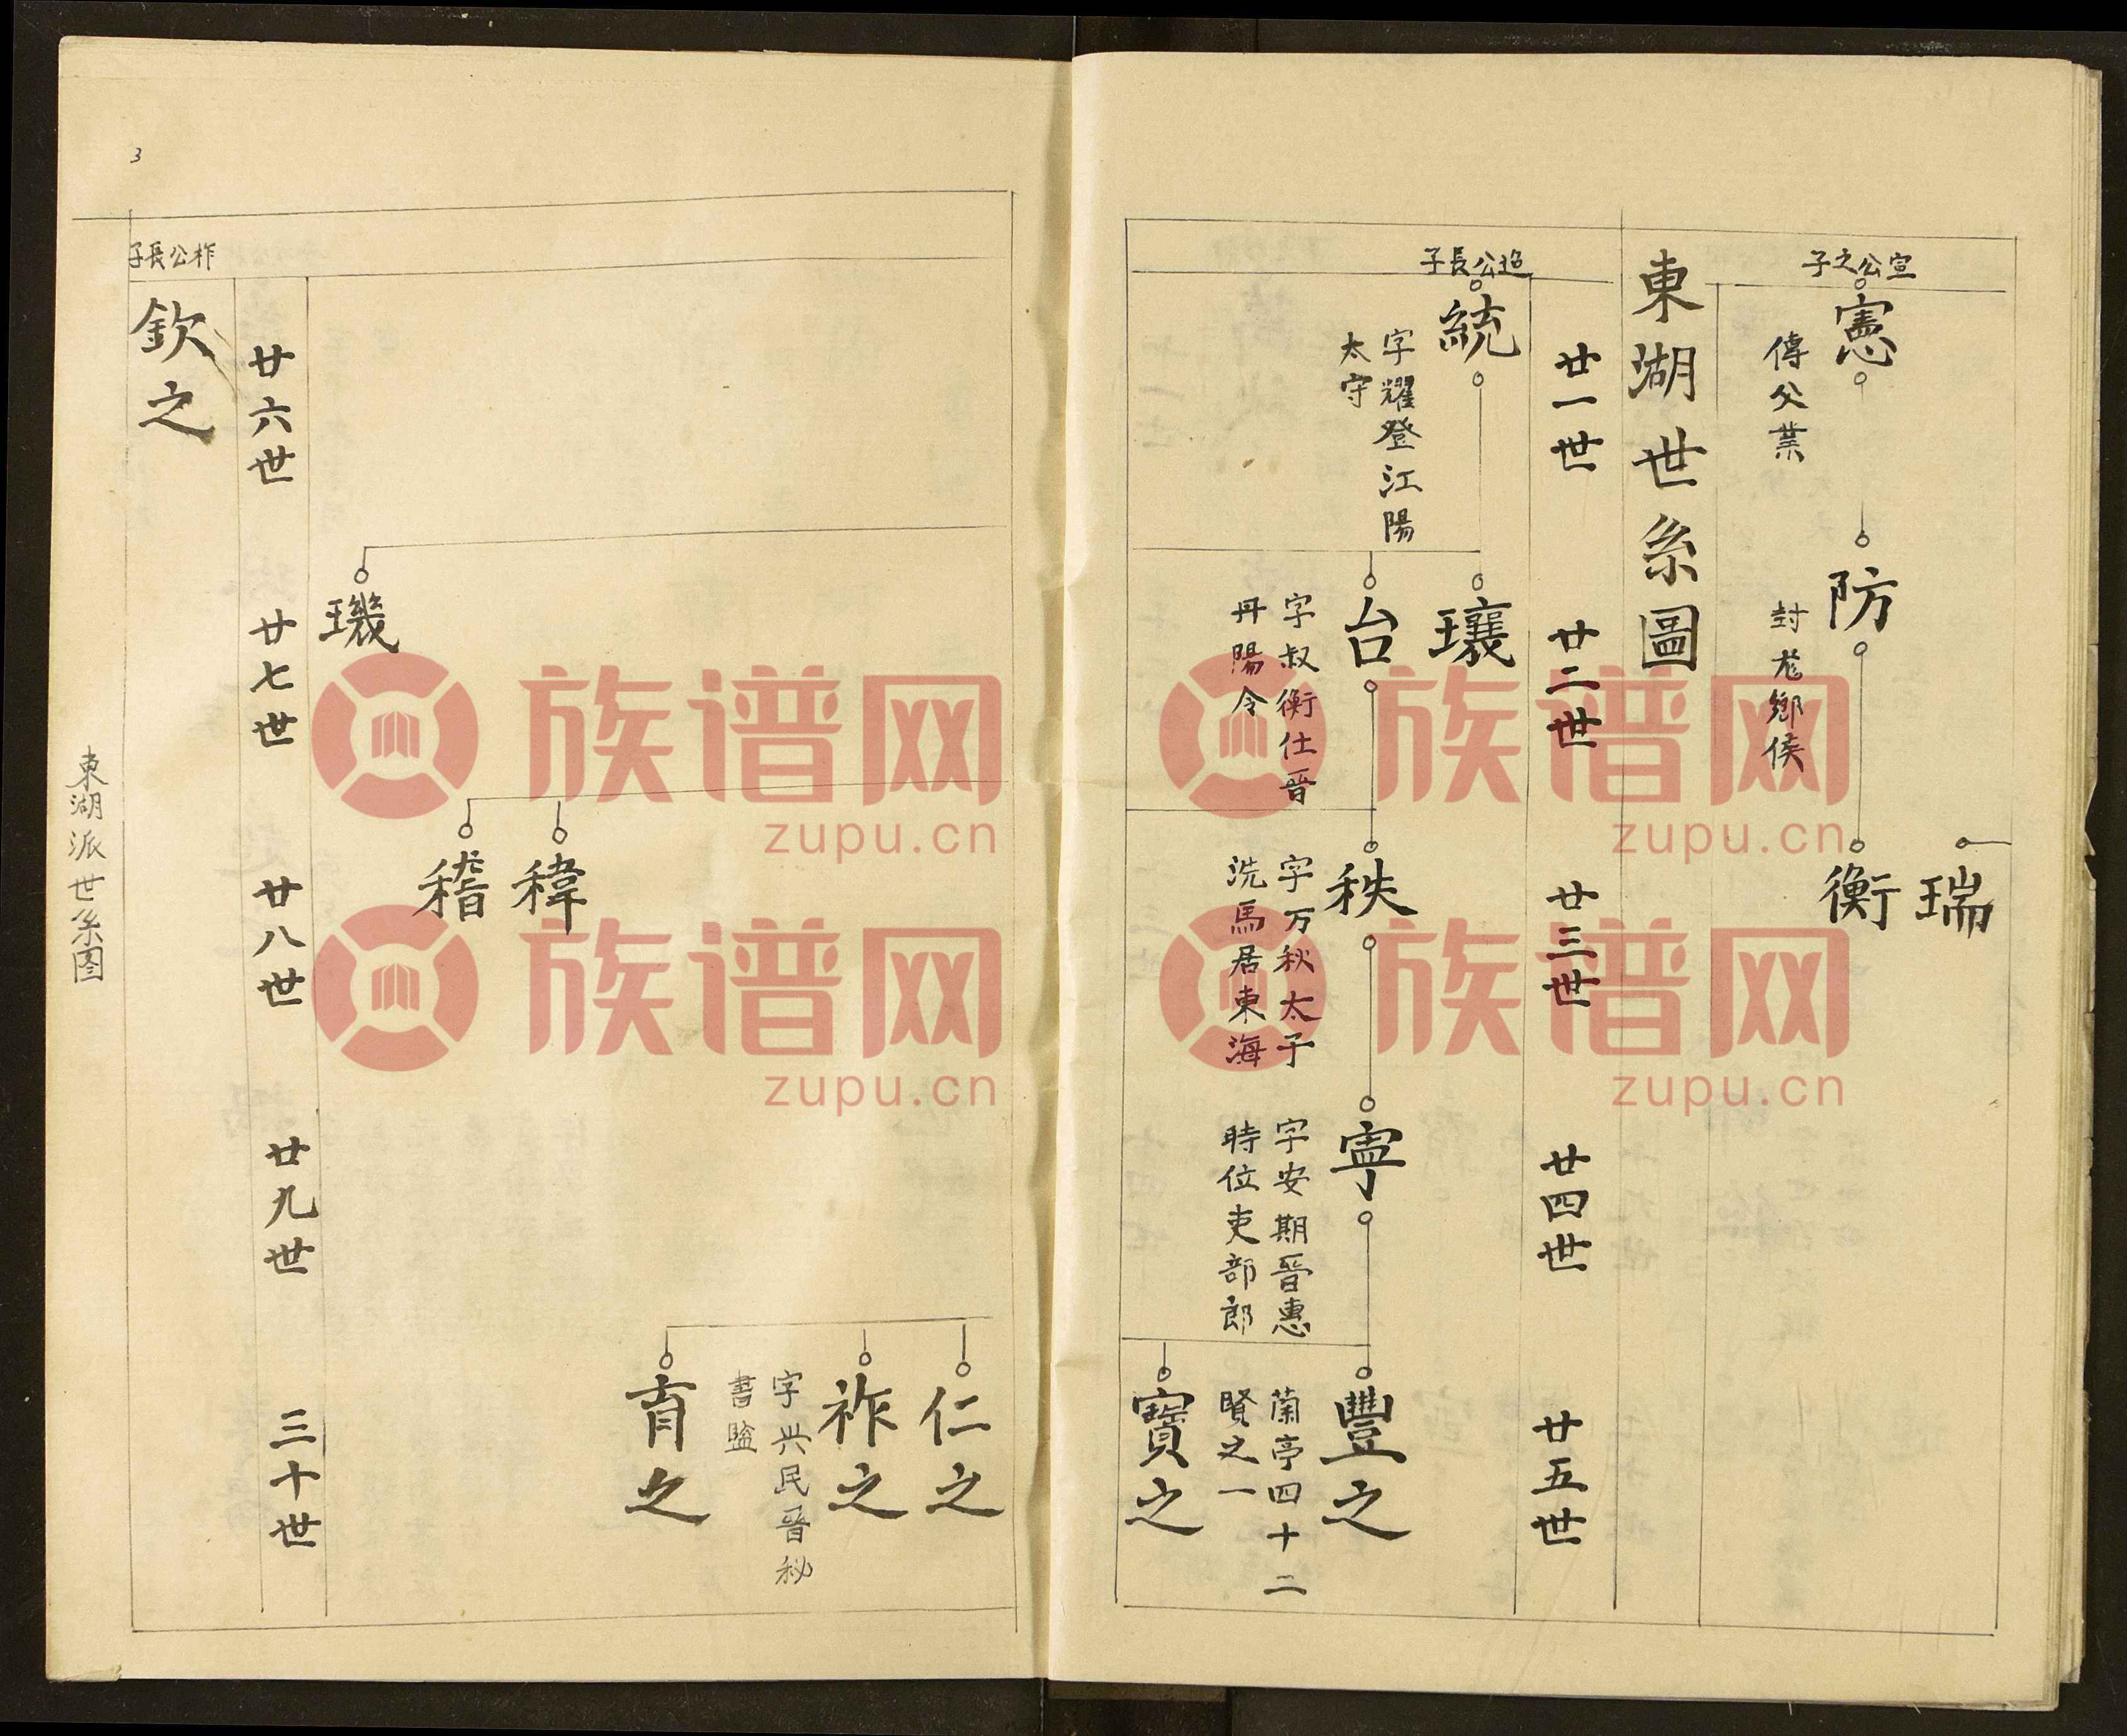 宣公之子
憲
傳父業
防
封尨鄉侯
瑞
衡
東湖世系圖
廿一世
廿二世
廿三世
廿四世
廿五世
迨公長子
統
字耀登江陽
太守
瓖
台
字叔衡仕晉
丹陽令
秩
字万秋太子
洗馬居東海
寧
字安期晉惠
時位吏部郎
豐之
蘭亭四十二
賢之一
寶之
仁之
祚之
字興民晉秘
書監
育之
稦
稽
璣
廿六世
廿七世
廿八世
廿九世
三十世
祚公長子
欽之
東湖派世系图
3
族谱网
zupu.cn
族谱网
zupu.cn
族谱网
zupu.cn
族谱网
zupu.cn